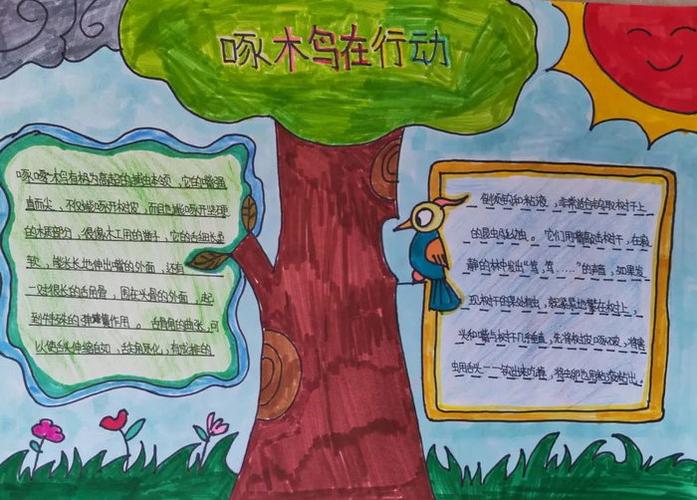 啄木鸟在行动
啄木鸟有极为高超的捕虫本领，它的嘴强
直而尖，不仅能啄开树皮，而且也能啄开坚硬
的木质部分，很像木工用的凿子，它的舌细长柔
软，能长长地伸出嘴的外面，还有
一对很长的舌角骨，围在头骨的外面，起
到特殊的弹簧作用。舌骨角的曲张，可
以使舌头伸缩自如，舌端角质化，有成排的
倒须钩和粘液，非常适合钩取树干上
的昆虫幼虫。它们用嘴敲击树干，在寂
静的林中发出“笃，笃……”的声音，如果发
现树干的某处有虫，就紧紧地攀在树上，
头和嘴与树干几乎垂直，先将树皮啄破，将害
虫用舌头一一钩出来吃掉，将虫卵也用粘液粘出。